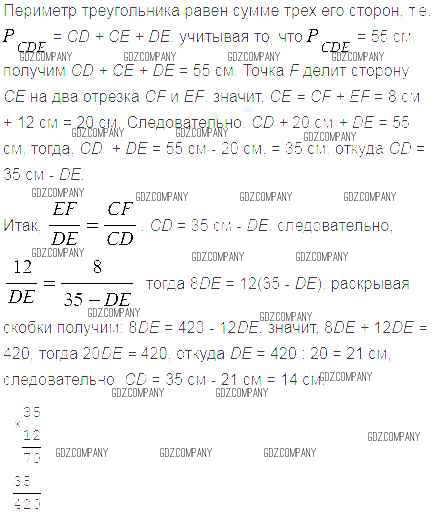 Периметр треугольника равен сумме трех его сторон, т.е.
P CDE = CD + CE + DE, учитывая то, что P CDE = 55 см
GDZCOMPANY GDZCOMPANY GDZCOMPANY
получим CD + CE + DE = 55 см. Точка F делит сторону
CE на два отрезка CF и EF, значит, CE = CF + EF = 8 см
+ 12 см = 20 см. Следовательно, CD + 20 см + DE = 55
GDZCOMPANY GDZCOMPANY GDZCOMPANY
см, тогда, CD + DE = 55 см - 20 см, = 35 см, откуда CD =
35 см - DE.
GDZCOMPANY GDZCOMPANY GDZCOMPANY GDZCOMPANY
Итак, EF/DE = CF/CD, CD = 35 см - DE, следовательно,
GDZCOMPANY GDZCOMPANY GDZCOMPANY
12/DE = 8/(35 – DE), тогда 8DE = 12(35 - DE), раскрывая
GDZCOMPANY GDZCOMPANY
скобки получим: 8DE = 420 - 12DE, значит, 8DE + 12DE =
420, тогда 20DE = 420, откуда DE = 420 : 20 = 21 см,
следовательно, CD = 35 см - 21 см = 14 см.
GDZCOMPANY
GDZCOMPANY GDZCOMPANY
35
×
12
GDZCOMPANY
70
GDZCOMPANY GDZCOMPANY GDZCOMPANY
35
420